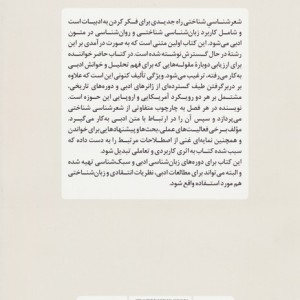 شعرشناسی شناختی راه جدیدی برای فکر کردن به ادبیات است
و شامل کاربرد زبان‌شناسی شناختی و روان‌شناسی در متون
ادبی می‌شود. این کتاب اولین متنی است که به صورت درآمدی بر این
رشتهٔ در حال گسترش نوشته شده است. در کتاب حاضر خواننده
برای ارزیابی دوبارهٔ مقوله‌هایی که برای فهم تحلیل و خوانش ادبی
به‌کار می‌رفته، ترغیب می‌شود. ویژگی تألیف کنونی این است که علاوه
بر دربرگرفتن طیف گسترده‌ای از ژانرهای ادبی و دوره‌های تاریخی،
مشتمل بر هر دو رویکرد آمریکایی و اروپایی این حوزه است.
نویسنده در هر فصل به چارچوب متفاوتی از شعرشناسی شناختی
می‌پردازد و سپس آن را در ارتباط با متن ادبی به‌کار می‌گیرد.
مؤلف برخی فعالیت‌های عملی، بحث‌ها و پیشنهادهایی برای خواندن
و همچنین نمایه‌ای غنی از اصطلاحات مرتبط را به دست داده که
سبب شده کتاب به اثری کاربردی و تعاملی تبدیل شود.
این کتاب برای دوره‌های زبان‌شناسی ادبی و سبک‌شناسی تهیه شده
و البته می‌تواند برای مطالعات ادبی، نظریات انتقادی و زبان‌شناختی
هم مورد استفاده واقع شود.